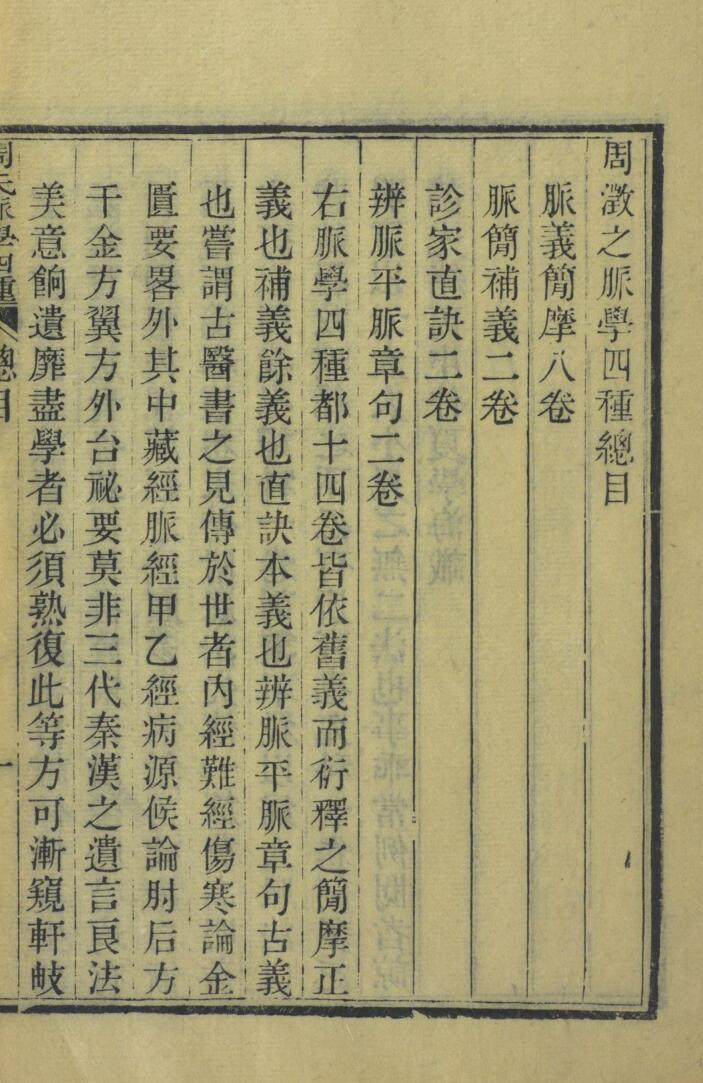 周澂之脈學四種總目
脈義簡摩八卷
脈簡補義二卷
診家直訣二卷
辨脈平脈章句二卷
右脈學四種都十四卷皆依舊義而衍釋之簡摩正
義也補義餘義也直訣本義也辨脈平脈章句古義
也嘗謂古醫書之見傳於世者內經難經傷寒論金
匱要畧外其中藏經脈經甲乙經病源候論肘后方
千金方翼方外台祕要莫非三代秦漢之遺言良法
美意餉遺靡盡學者必須熟復此等方可漸窺軒岐
周氏脈學四種 總目 一